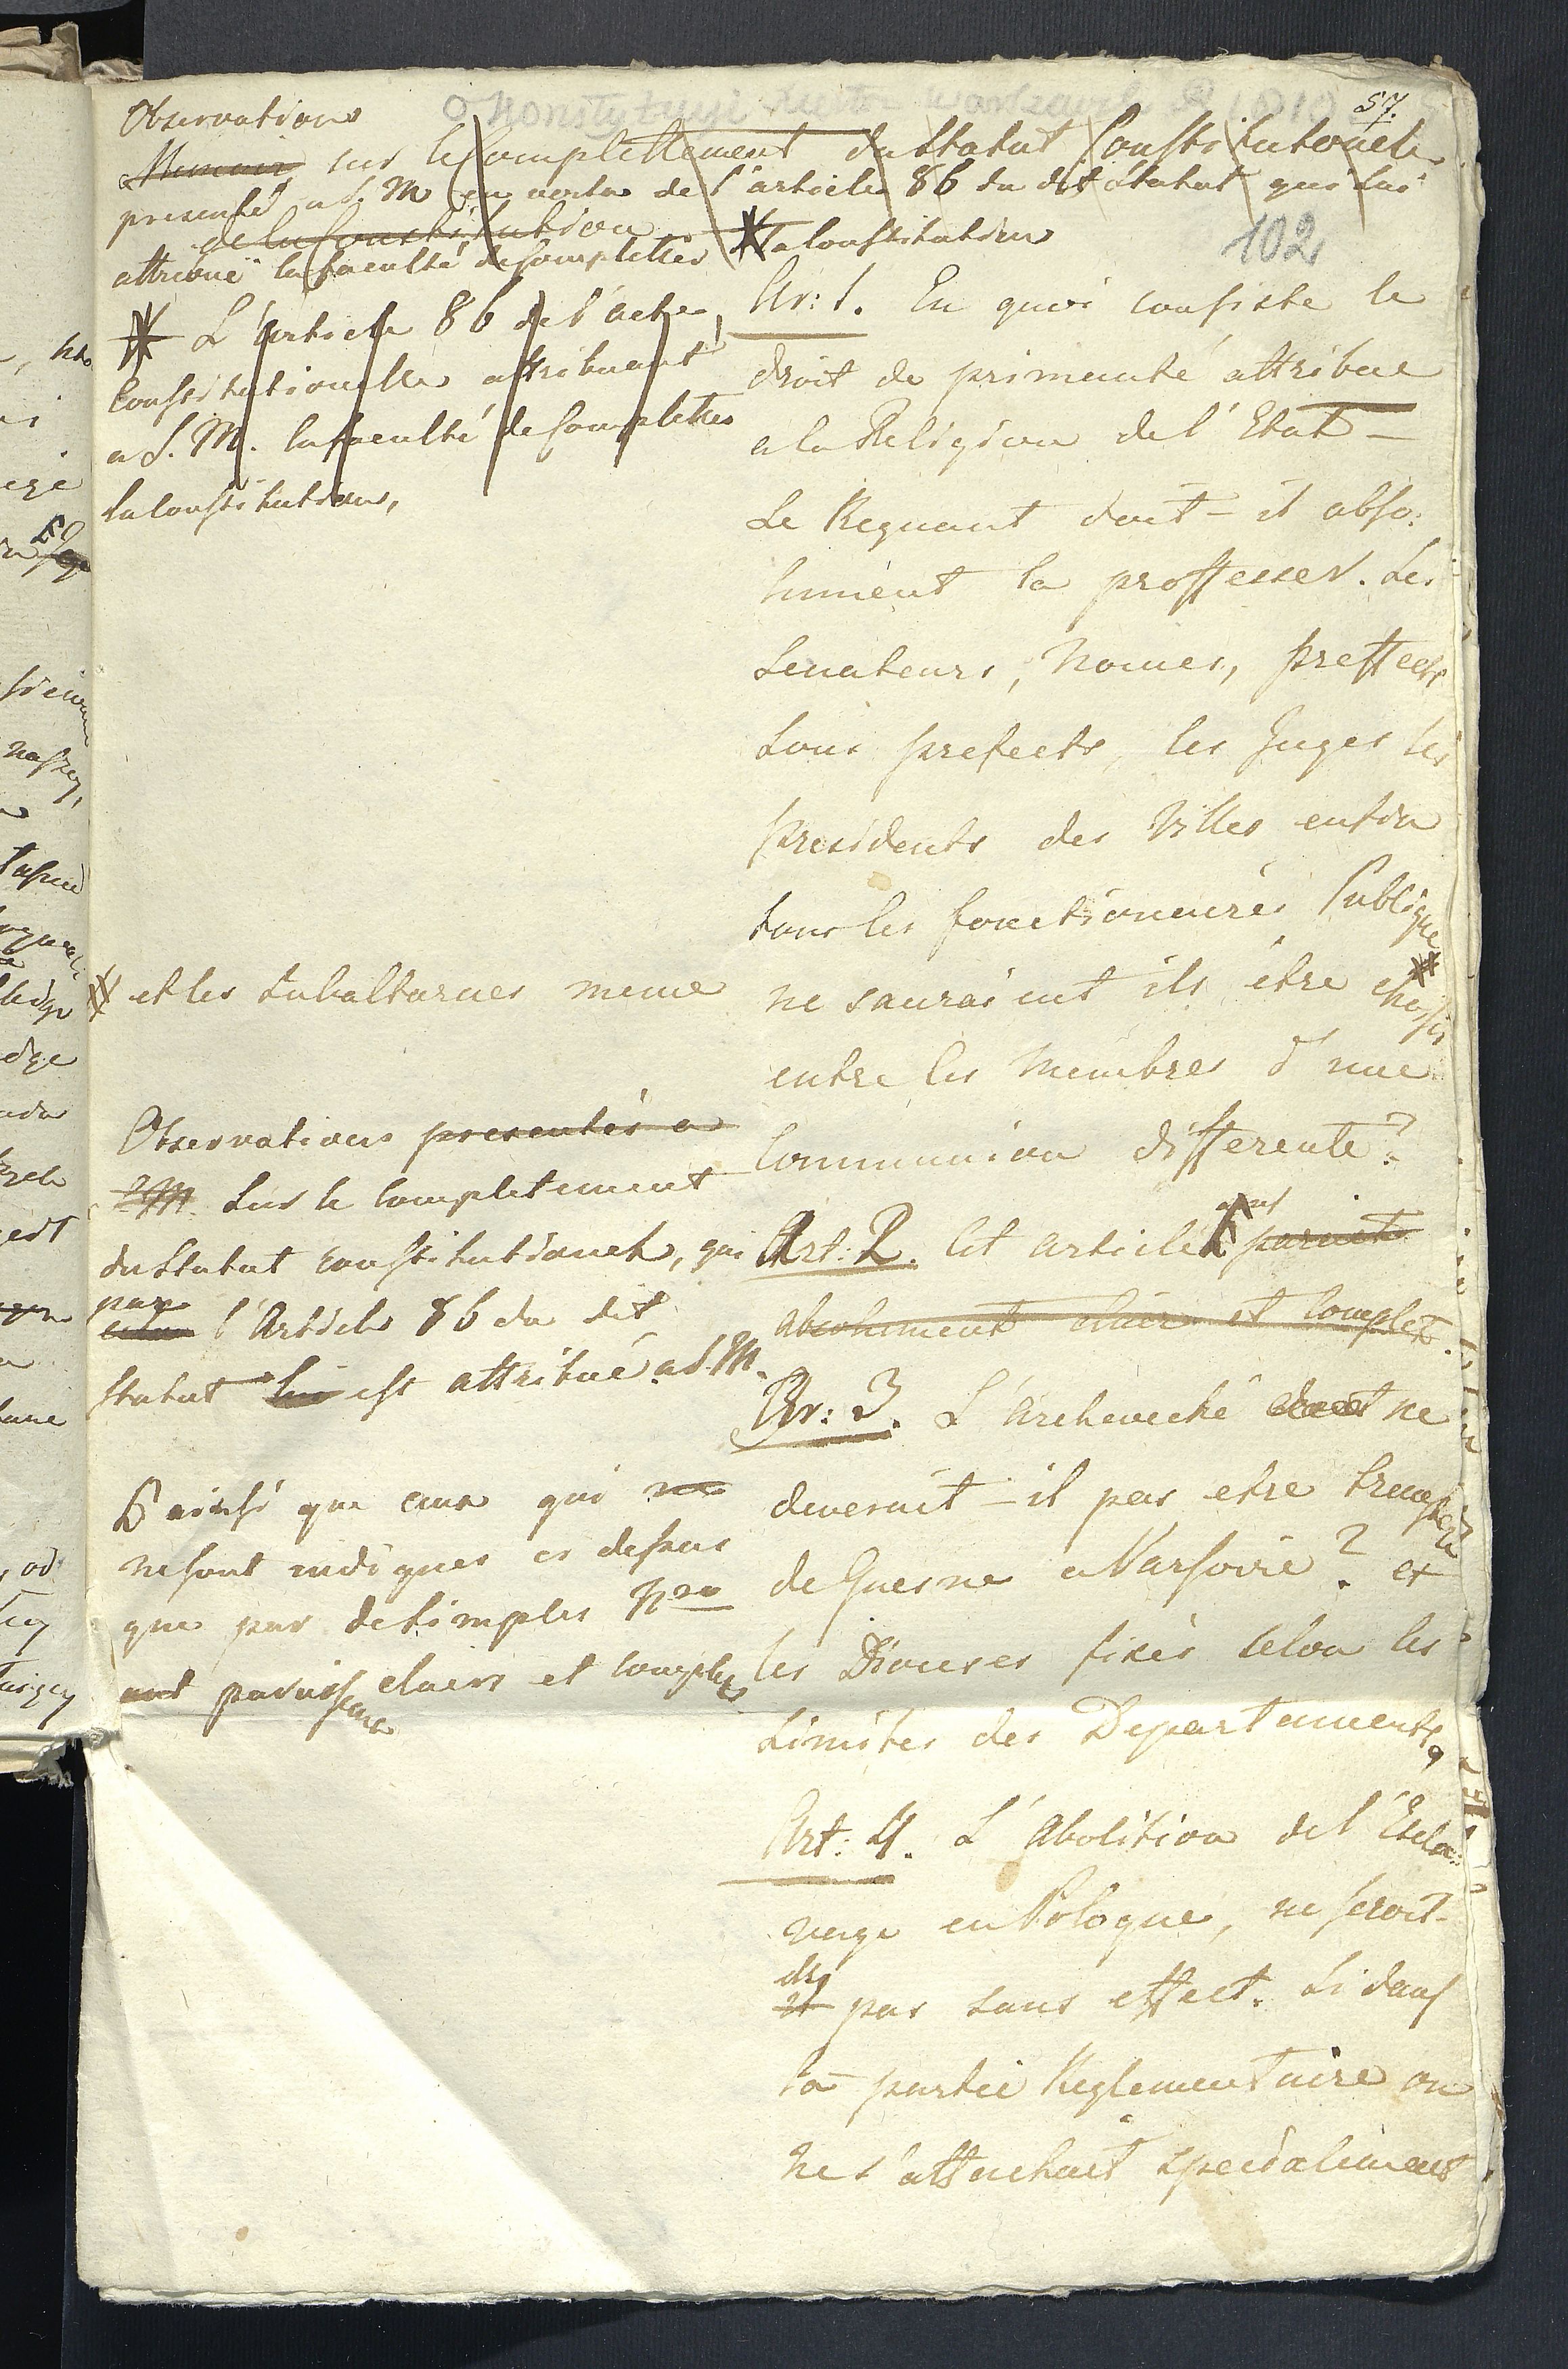 57.
102
Observations
Memoire sur le Complettement du Statut Constitutionele
presenté a S. M en vertu de l'article 86 du dit Statut qui lui
de la Constitution
attribue la faculté de Completter la Constitution
L'Article 86 de l'acte
Constitutionelle attribuant
a S. M. la faculté de Completter
la Constitution,
et les Subalternes meme
Observations presentés a
S M. Sur le Completement
du Statut constitutionel, qui
par
l'Article 86 du dit
Statut lui est attribué a S. M.
ainsi que ceux qui ne
ne sont indiques ci dessus
que par de Simples Nro
paroissent clairs et complets
Ar: 1. En quoi consiste le
droit de primauté attribue
a la Religion de l'Etat —
Le Regnant doit-il abso:
lument la proffesser. Les
Senateurs, Nonces, preffects
Sous prefects, les Juges les
presidents des Villes enfin
tous les fonctionaires Publique
ne sauraient ils être choisis
entre les Membres d'une
Communion differente?
Art: 2. Cet article paroit
absolument clair et complet.
Ar: 3. L'Archeveché doit ne
deveroit-il pas etre transferé
de Guesne a Varsovie? et
les Dioceses fixés selon les
Limites des Departaments
Art: 4. L'Abolition de l'Escla:
vage en Pologne, ne seroit-
elle
il pas sans effect. Si dans
la partie Reglementaire on
ne s'attachait specialement